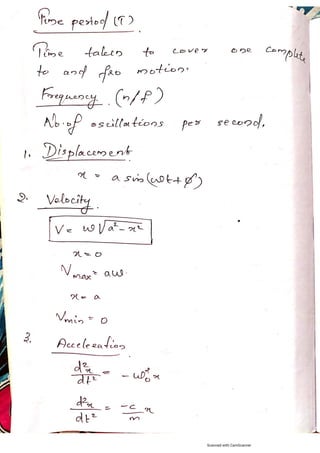 Time period (T)
Time taken to cover one complete
to and fro motion.
Frequency (n/f)
No. of oscillations per second.
1. Displacement
x = a sin(ωt+φ)
2. Velocity
V = ω√a²-x²
x = 0
Vmax = aω.
x = a
Vmin = 0
3. Acceleration
d²x/dt² = -ω₀²x
d²x/dt² = -c/m x
Scanned with CamScanner